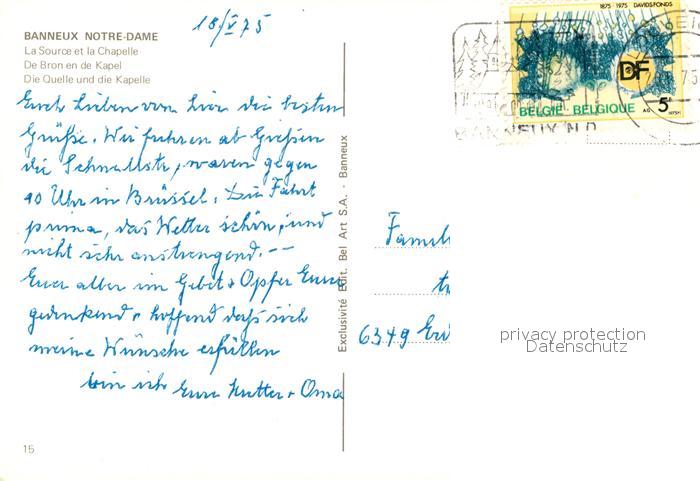 18/V 75
BANNEUX NOTRE-DAME
La Source et la Chapelle
De Bron en de Kapel
Die Quelle und die Kapelle
Euch Lieben von hier die besten
Grüße. Wir fuhren ab Gießen
die Schnellste, waren gegen
10 Uhr in Brüssel. Die Fahrt
prima, das Wetter schön, und
nicht sehr anstrengend. --
Euer aller im Gebet + Opfer
gedenkend + hoffend daß sich
meine Wünsche erfüllen
bin ich Eure Mutter + Oma
15
Exclusivité Edit. Bel Art S.A. - Banneux
1875-1975 DAVIDSFONDS
DF
BELGIE BELGIQUE
5F
BANNEUX N.D.
Famil
6349
privacy protection
Datenschutz